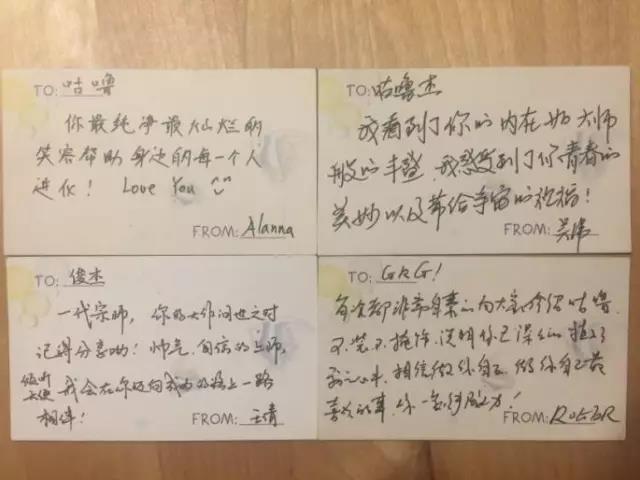 TO: 咕噜
你最纯净最灿烂的
笑容帮助身边的每一个人
进化! Love You
FROM: Alanna
TO: 咕噜杰
我看到了你的内在如大师
般的丰盛,我感受到了你青春的
美妙以及带给宇宙的祝福!
FROM: 吴伟
TO: 俊杰
一代宗师, 你的大作问世之时
记得分享哟! 帅气、自信的上师,
倾听
天使
我会在你迈向成功的路上一路
相伴!
FROM: 王倩
TO: GRG!
每次都非常自豪的向大家介绍咕噜,
不 不掩饰, 说明你已深深
相信做你自己, 做你自己最
喜欢的事, 你一定
FROM: ROGER